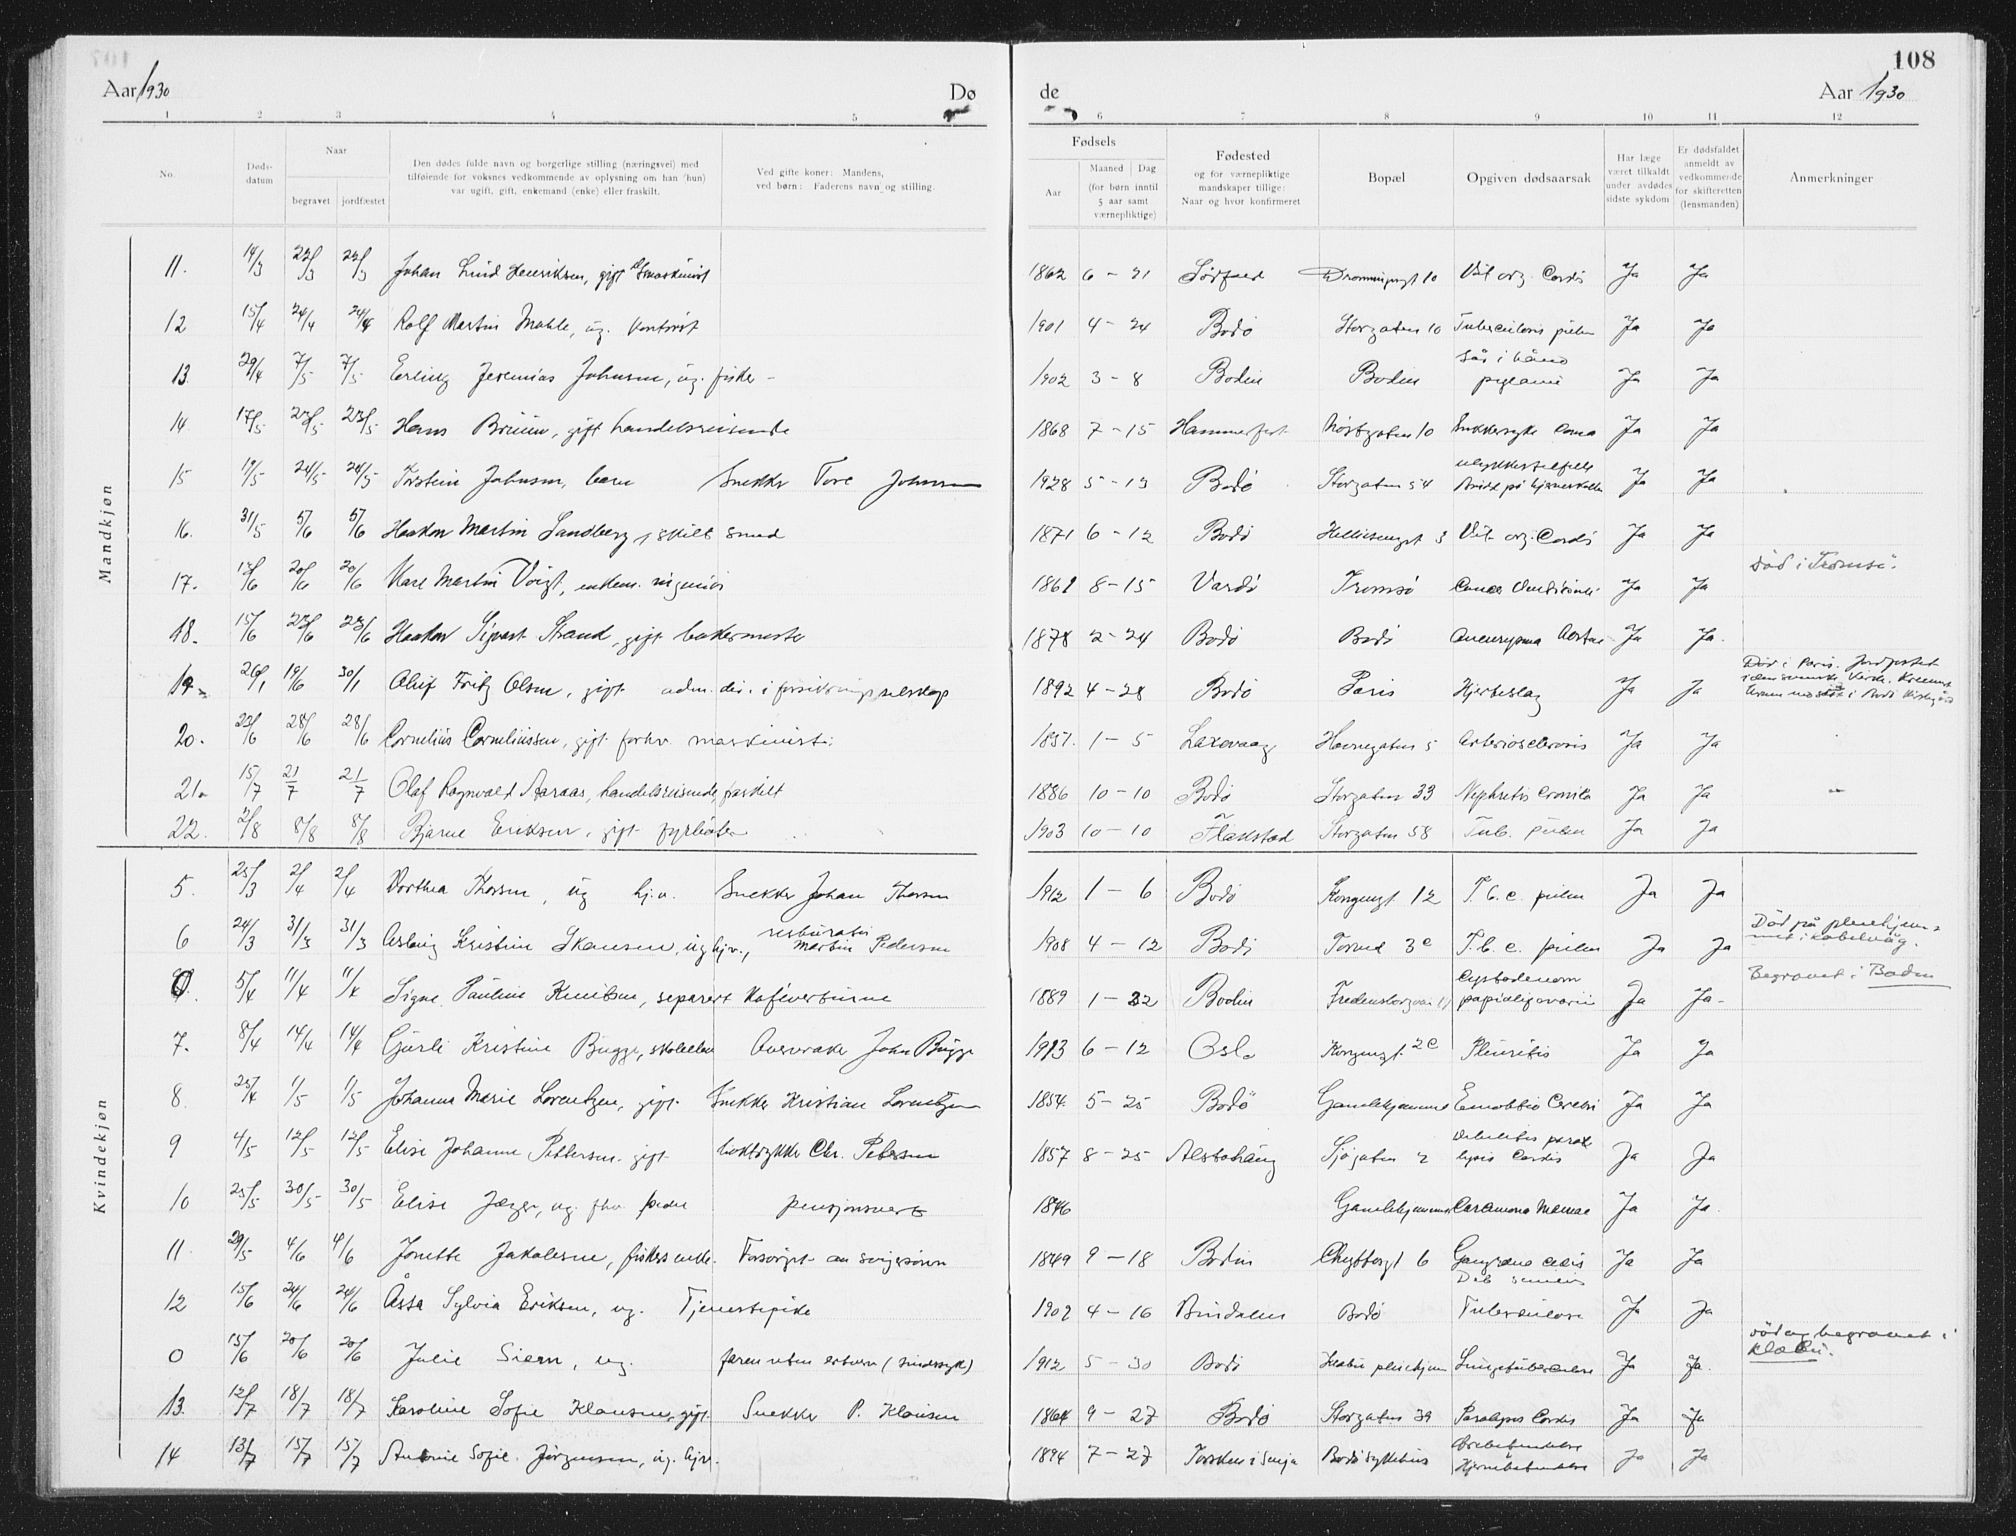 108
Aar 1930 Dø de Aar 1930
1 2 3 4 5 6 7 8 9 10 11 12
No.
Døds-
datum
Naar
begravet jordfæstet
Den dødes fulde navn og borgerlige stilling (næringsvei) med
tilføiende for voksnes vedkommende av oplysning om han (hun)
var ugift, gift, enkemand (enke) eller fraskilt.
Ved gifte koner: Mandens,
ved børn: Faderens navn og stilling.
Fødsels
Aar
Maaned Dag
(for børn inntil
5 aar samt
værnepliktige)
Fødested
og for værnepliktige
mandskaper tillige:
Naar og hvor konfirmeret
Bopæl
Opgiven dødsaarsak
Har læge
været tilkaldt
under avdødes
sidste sykdom
Er dødsfaldet
anmeldt av
vedkommende
for skifteretten
(lensmanden)
Anmerkninger
Mandkjøn
11. 14/3 22/3 22/3 Johan Lind Henriksen, gift maskinist 1862 6 - 21 Dronningsgt 10 Vit. org. Cordis Ja Ja
12 15/4 24/4 24/4 Rolf Martin Mahle, ug. kontorist 1901 4 - 24 Bodø Storgaten 10 Tuberculosis pulm Ja Ja
13. 29/4 7/5 7/5 Erling Jeremias Johnsen, ug. fisker - 1902 3 - 8 Bodin Bodin Sår i hånd
pyæmi Ja Ja
14 17/5 23/5 23/5 Hans Bruun, gift handelsreisende 1868 7 - 15 Hammerfest 10 Sukkersyke Coma Ja Ja
15 19/5 24/5 24/5 Torstein Johnsen, barn Snekker Tore Johnsen 1928 5 - 13 Bodø Storgaten 54 ulykkestilfelle
Brudd på hjerneskallen Ja Ja
16. 31/5 5/6 5/6 Haakon Martin Sandberg, skilt smed 1871 6 - 12 Bodø 3 Vit. org. Cordis Ja Ja
17. 12/6 20/6 20/6 Karl Martin Voigt, enkem. ingeniør 1861 8 - 15 Vardø Tromsø Cancer Ja Ja død i Tromsø.
18. 15/6 23/6 23/6 Haakon Sigvart Strand, gift bakermester 1878 2 - 24 Bodø Bodø Aneurysma Aortae Ja Ja.
19. 26/1 19/6 30/1 Oluf Fritz Olsen, gift adm. dir. i forsikringsselskap 1892 4 - 28 Bodø Paris Hjerteslag Ja Ja Død i Paris. Jordfestet
i den svenske Kirke.
i Bodø Kirkegård
20. 22/6 28/6 28/6 Cornelius Corneliussen, gift forhv. maskinist. 1857. 1 - 5 Laxevaag Havnegaten 5 Arteriosclerosis Ja Ja
21. 15/7 21/7 21/7 Olaf Ragnvald Aaraas, handelsreisende, fraskilt 1886 10 - 10 Bodø Storgaten 33 Nephritis Cronica Ja Ja
22. 2/8 8/8 8/8 Bjarne Eriksen, gift fyrbøter 1903 10 - 10 Flakstad Storgaten 58 Tub. pulm Ja Ja
Kvindekjøn
5. 25/3 2/4 2/4 Dorthea Thorsen, ug hj.v. Snekker Johan Thorsen 1912 1 - 6 Bodø Kongensgt 12 T.b.c. pulm Ja Ja
6 24/3 31/3 31/3 Aslaug Kristine Skansen, ug hjv., restauratør
Martin Pedersen 1908 4 - 12 Bodø Torvet 3c T.b.c. pulm Ja Ja Død på pleiehjem-
met i Kabelvåg.
0. 5/4 11/4 11/4 Signe Pauline Knutsen, separert kafévertinne 1889 1 - 22 Bodin Cystadenom
papial. ovarii Ja Ja - Begravet i Bodin
7. 8/4 14/4 14/4 Gurli Kristine Bugge, skoleelev John Bugge 1913 6 - 12 Oslo Kongensgt. 2c Pleuritis Ja Ja
8. 25/4 1/5 1/5 Johanna Marie Lorentzen, gift Snekker Kristian Lorentzen 1854. 5 - 25 Bodø Gamlehjemmet Embolia Cerebri Ja Ja
9 4/5 12/5 12/5 Elise Johanne Pettersen, gift boktrykker Chr. Petersen 1857 8 - 25 Alstahaug Sjøgaten 2 paral
lysis Cordis Ja Ja
10 25/5 30/5 30/5 Elise Jæger, ug. fhv. pensjonsvert 1846 Gamlehjemmet Carcinoma Mamae Ja Ja.
11 29/5 4/6 4/6 Jonette Jakobsen, fiskers enke. Forsørget av svigersønn 1849 9 - 18 Bodin 6 Gangræna
Deb. senilis Ja Ja
12 15/6 24/6 24/6 Åsta Sylvia Eriksen, ug. Tjenestepike 1902 4 - 16 Bindalen Bodø Tuberculose Ja Ja
0 15/6 20/6 20/6 Julie Sieen, ug. faren uten erhverv (sindssyk) 1912 5 - 30 Bodø Klæbu pleiehjem Lungetuberculose Ja Ja. død og begravet i
Klæbu.
13. 12/7 18/7 18/7 Karoline Sofie Klausen, gift. Snekker P. Klausen 1864 9 - 27 Bodø Storgaten 39 Paralysis Cordis Ja Ja
14 13/7 15/7 15/7 Antonie Sofie Jørgensen, ug. hjv. 1894 7 - 27 Torsken i Senja Bodø sykehus Ørebetendelse
Hjernebetendelse Ja Ja